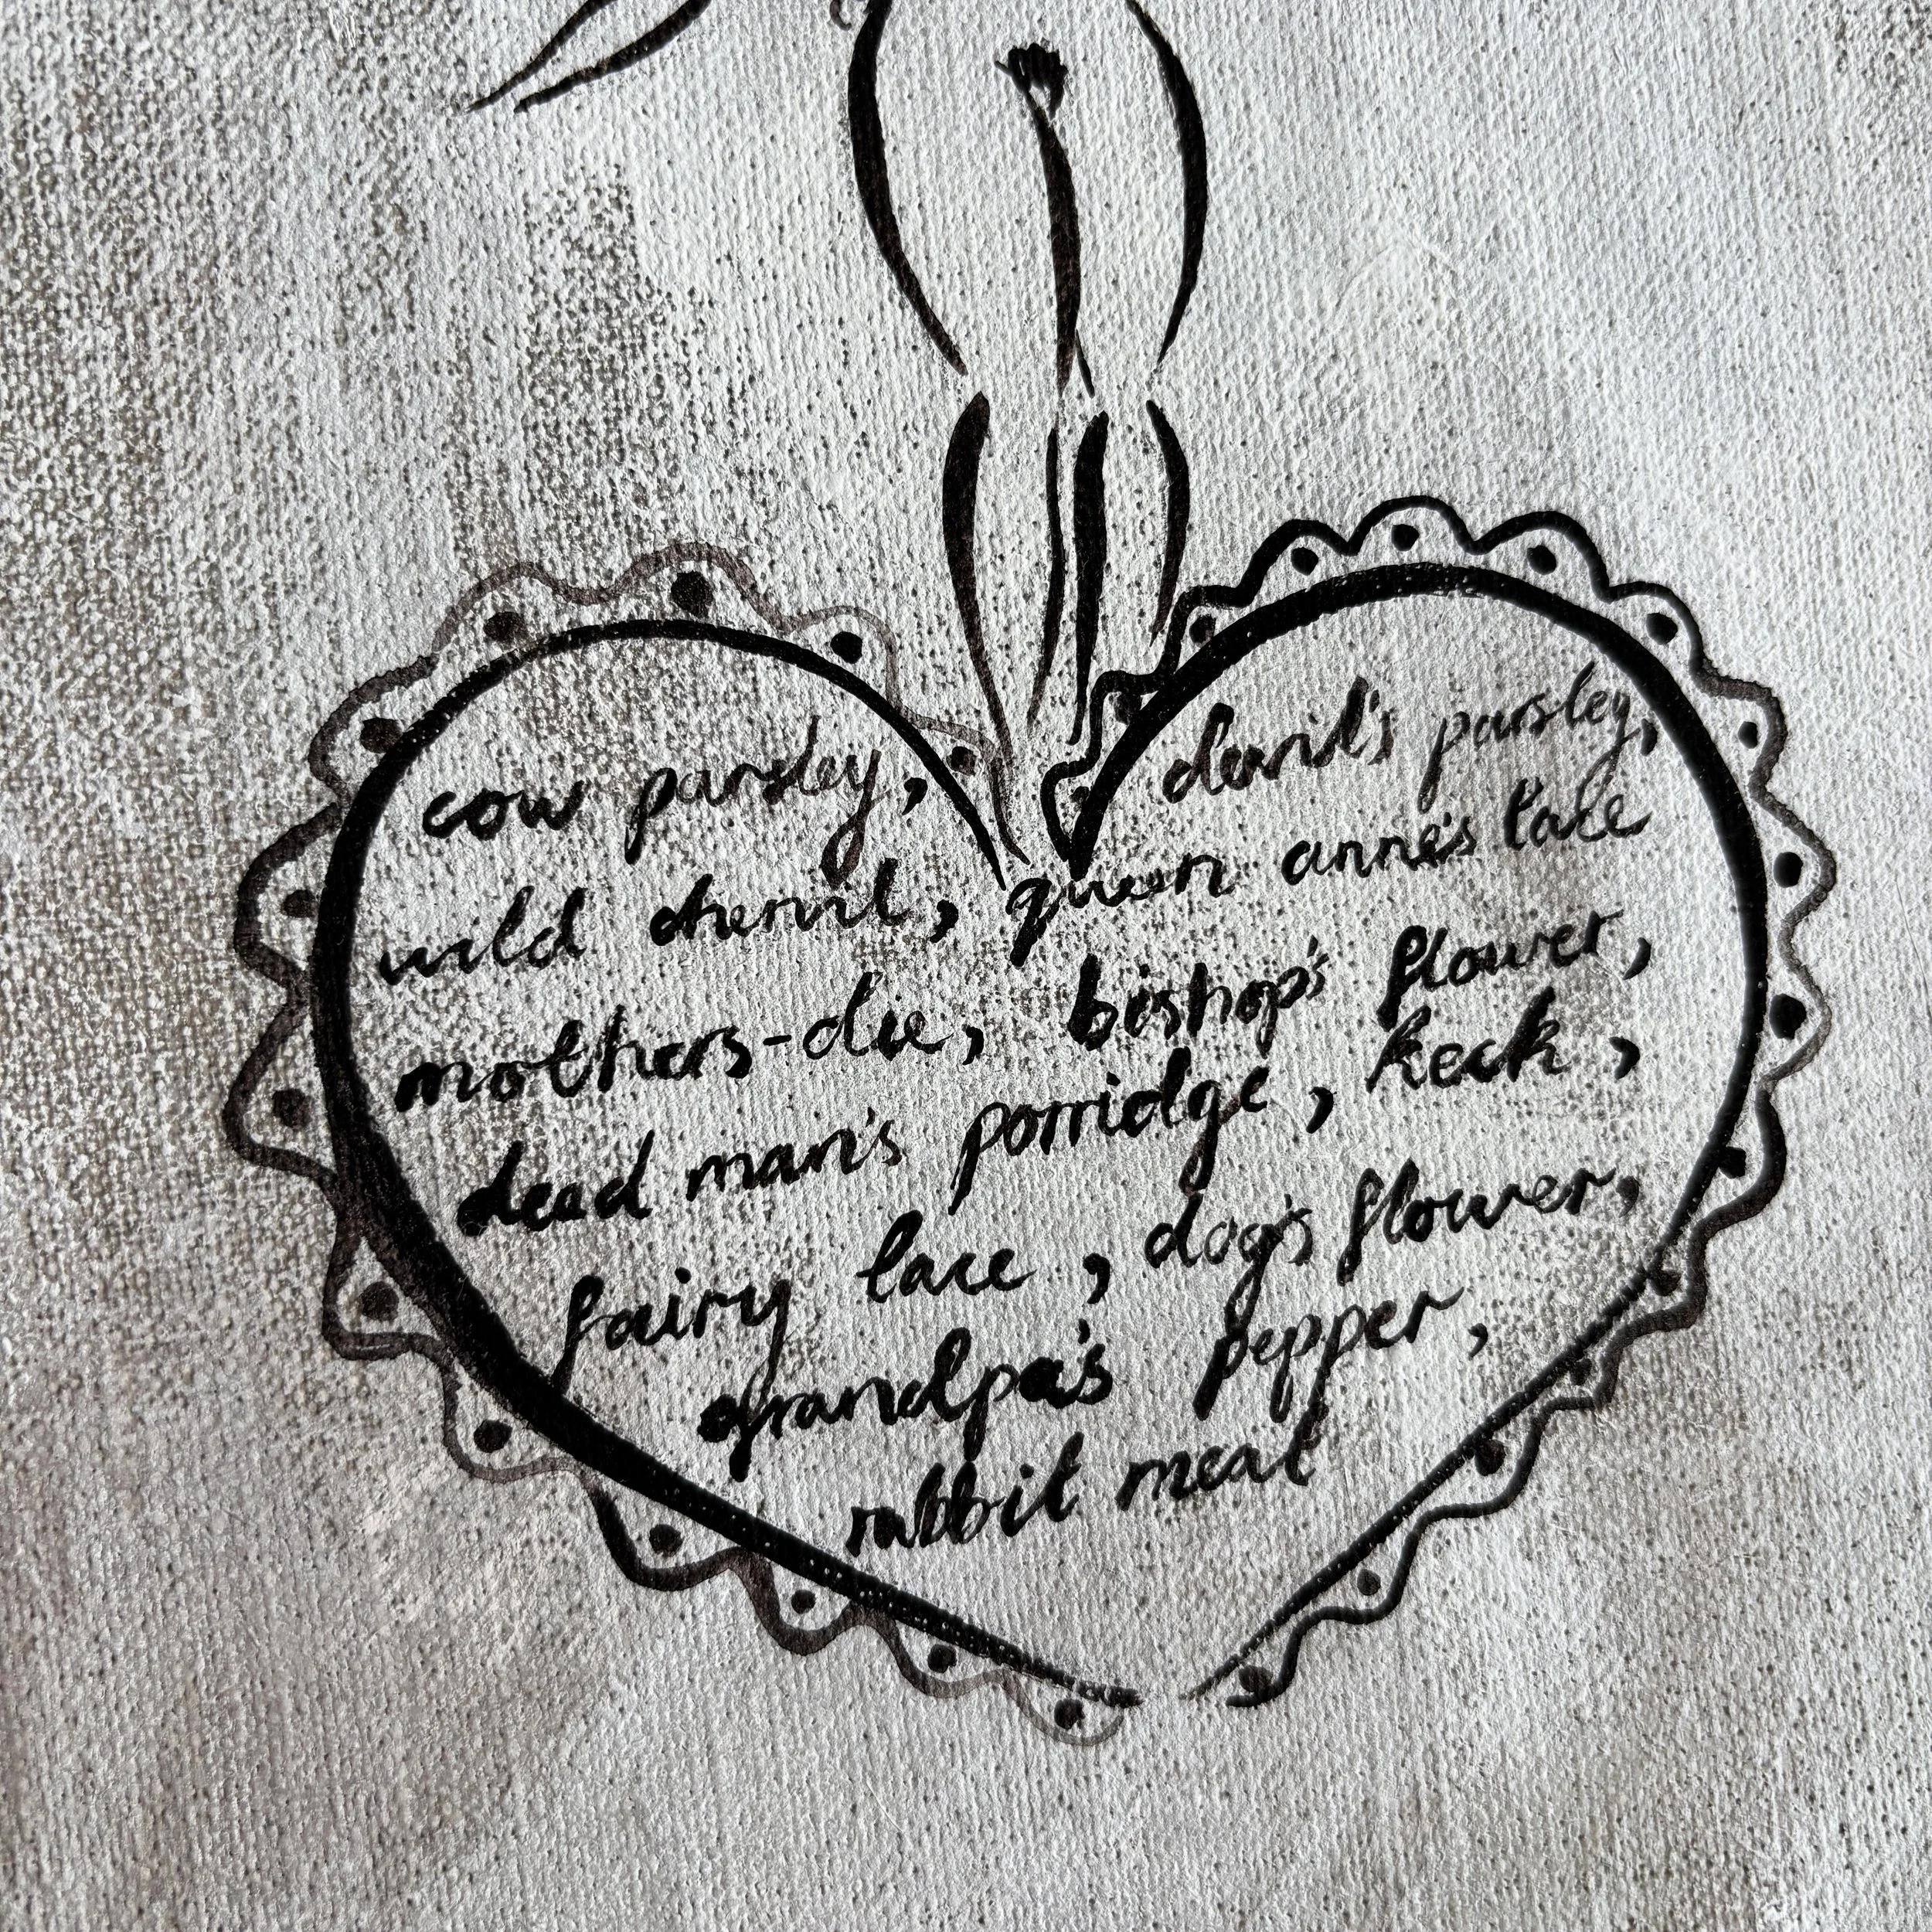 cow parsley, devil's parsley,
wild chervil, queen anne's lace
mothers-die, bishop's flower,
dead man's porridge, keck,
fairy lace, dog's flower,
grandpa's pepper,
rabbit meat